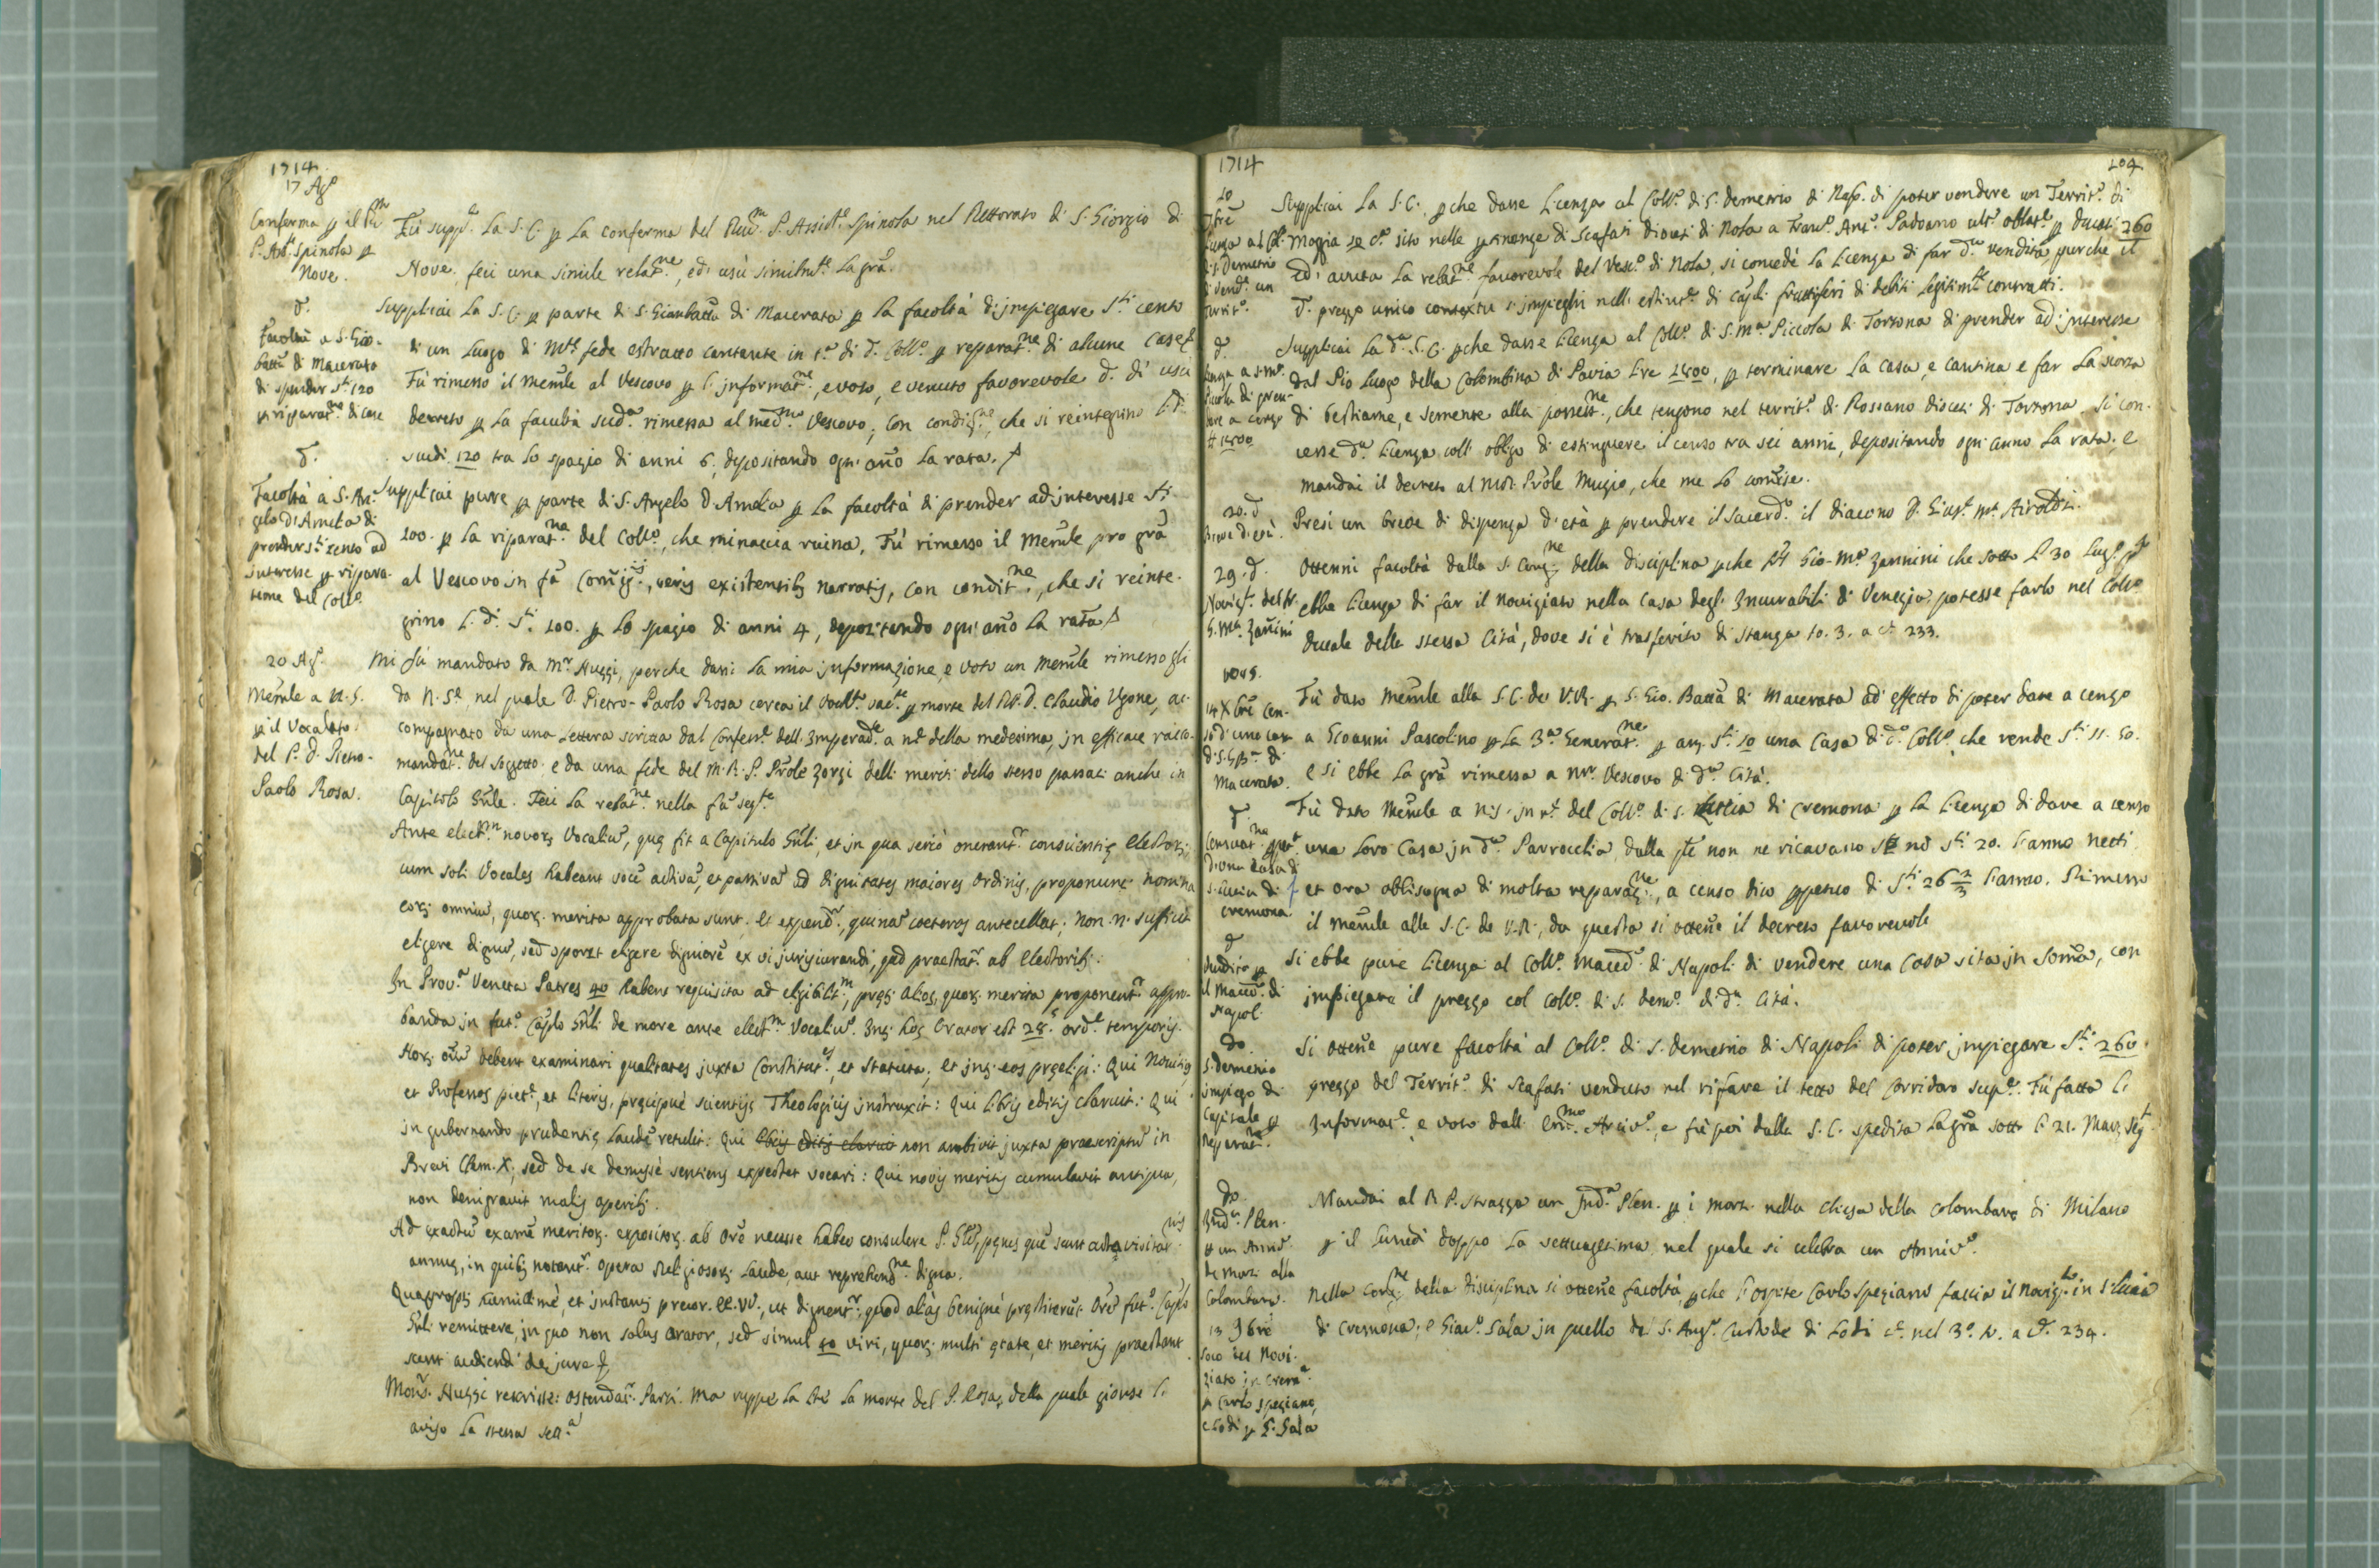 1714.
17 Ag.o
Conferma p il Pre
P. Ass.te Spinola p
Nove.
Fù supp.ta La S. C. p La conferma del Rev.m P. Assist.e Spinola nel Rettorato di S. Giorgio di
Nove, feci una simile relat.ne, ed uscì similm.te La grã.
d.
Facoltà a S. Gio.
Batta di Macerata
di spender s.ti 120
p riparat.ne di case
Supplicai La S. C. p parte di S. Gianbatta di Macerata p la facoltà d'impiegare s.ti cento
di un Luogo di M.te fede estratto contante in c.a di d. Coll.o p reparat.ne di alcune case
Fù rimesso il memle al Vescovo p l'informat.ne, e voto, e venuto favorevole d.
decreto p La facoltà sud.a rimessa al med.mo Vescovo, con condiz.ne, che si reintegrino
scudi 120 tra lo spazio di anni 6. depositando ogni año La rata.
d.
Facoltà a S. An-
gelo d'Amelia di
prender s.ti cento ad
interesse p ripara-
tione del Coll.o
Supplicai pure p parte di S. Angelo d'Amelia p La facoltà di prender ad interesse s.ti
100. p La riparat.ne del Coll.o, che minaccia ruina. Fù rimesso il Memle pro grã
al Vescovo in fã Com̃ij, veris existentib. narratis, con condit.ne, che si reinte-
grino l. d. s.ti 100. p lo spazio di anni 4, depositando ogni año la rata
20 Ag.o
Memle a N. S.
p il Vocalato
del P. D. Pietro-
Paolo Rosa.
Mi fù mandato da M.r Nuzzi, perche dassi La mia informazione, e voto un memle rimessogli
da N. S.e, nel quale D. Pietro-Paolo Rosa cerca il vocal.to vac.te p morte del P. D. Claudio Ugone, ac-
compagnato da una Lettera scritta dal Confess.e dell'Imperad.e a n.e della medesima, in efficace racco-
mandat.ne del soggetto, e da una fede del M. R. P. Prole Zorzi delli meriti dello stesso passati anche in
Capitolo Gñle. Feci La relat.ne nella fã seg.te
Ante elect.m novor. Vocaliũ, quę fit a Capitulo Gñli, et in qua serio onerant.r conscientię Electorũ
cum soli Vocales habeant vocẽ activã, et passivã ad dignitates maiores Ordinis, proponunt. nomina
eor. omniũ, quor. merita approbata sunt. et expend.r, quinã coeteros antecellat; non n. sufficit
eligere dignũ, sed oportet eligere digniorẽ ex vi jurisiurandi, quod praestat.r ab Electorib.
In Prov.a Veneta Patres 40 habent requisita ad eligibilit.m, pręter alios, quor. merita proponent.r appro-
banda in fut.o Caplo Gñli de more ante elect.m Vocaliũ. Int. hos Orator est 28.s ord.e temporis.
Hor. oĩũ debent examinari qualitates juxta Constitut.es, et Statuta, et int. eos pręeligi: Qui Novitios
et Professos piet.e, et literis, pręcipuè scientijs Theologicis instruxit: Qui libris editis claruit: Qui
in gubernando prudentię laudẽ retulit: Qui libris editis claruit non ambivit juxta praescriptũ in
Brevi Clem. X, sed de se demissè sentiens expectat vocari: Qui novis meritis cumulavit antiqua,
non denigravit malis operib.
Ad exactũ examẽ meritor. expositor. ab Orẽ necesse habeo consulere P. Glem, penes quẽ sunt acta visitat.nis
annuę, in quib. notant.r opera Religiosor. laude, aut reprehens.ne digna.
Quapropt. humillimè, et instantis precor EE. VV., ut dignent.r, quod aliàs benignè pręstiterũt Orẽ fut.o Caplo
Gñli remittere, in quo non solus Orator, sed simul 40 viri, quor. multi ętate, et meritis praestant
sunt audiendi de jure &
Mons.r Nuzzi rescrisse: ostendat.r Parti. Ma ruppe La lite La morte del P. Rosa, della quale giunse l'
aviso La stessa sett.a
1714
104
10
7bre
Licenza al Coll.
di S. Demetrio
di vend. un
Territ.o
Supplicai La S. C. pche dasse Licenza al Coll.o di S. Demetrio di Nap. di poter vendere un Territ.o di
Moggia 10 c.a sito nelle ptinenze di Scafati Diocesi di Nola a Franc.o Ant.o Padoano ult.o oblat.e p Ducati 260
Ed avuta La relat.ne favorevole del Vesc.o di Nola, si concedè La Licenza di far d.a vendita, purche il
d. prezzo unico contextu s'impieghi nell'estinz.e di capli fruttiferi di debiti legitim.te contratti.
d.
Licenza a S. M.a
Piccola di pren-
dere a censo
# 1500
Supplicai La d.a S. C. pche dasse Licenza al Coll.o di S. M.a Piccola di Tortona di prender ad interesse
dal Pio Luogo della Colombina di Pavia Lire 1500, p terminare La casa, e cantina e far La scorta
di bestiame, e semente alla possess.ne, che tengono nel territ.o di Rossano diocesi di Tortona. Si con-
cesse d.a Licenza coll'obligo di estinguere il censo tra sei anni, depositando ogni anno La rata, e
mandai il decreto al M.R. Prole Muzio, che me lo comise.
20. d
Breve d'età.
Presi un breve di dispenza d'età p prendere il Sacerd.o il diacono D. Gius. M.a Airoldi.
29. d.
Noviz.o del fr.
G. M.a Zanini
Ottenni facoltà dalla S. Cong.ne della disciplina pche Gio. M.a Zannini che sotto li 30 Lug.
ebbe licenza di far il noviziato nella Casa degl'Incurabili di Venezia, potesse farlo nel Coll.o
Ducale della stessa Città, dove si è trasferito di stanza to. 3. a c. 233.
1715.
14 Xbre Cen-
so d'una casa
di S. G. B.a di
Macerata.
Fù dato Memle alla S. C. de V. R. p S. Gio. Batta di Macerata ad effetto di poter dare a cenzo
a Gioanni Pascolino p La 3.a Generat.ne p an. s.ti 10 una Casa di d.o Coll.o che rende s.ti 11. 50.
e si ebbe La grã rimessa a Mr. Vescovo di d.a Città.
d.
Censuat.ne ppet.a
d'una casa di
S. Lucia di
Cremona
Fù dato Memle a N. S. in n.e del Coll.o di S. Lucia di Cremona p La Licenza di dare a censo
una Loro Casa in d.a Parrocchia, dalla q.le non ne ricavano se nõ s.ti 20. l'anno netti
et ora abbisogna di molta reparaz.ne, a censo dico ppetuo di S.ti 26 2/3 l'anno. Rimesso
il memle alla S. C. de V. R., da questa si ottene il decreto favorevole
d
Indulto p
il Maced. di
Napoli
Si ebbe pure licenza al Coll.o Maced.o di Napoli di vendere una Casa sita in Somã, con
impiegare il prezzo col Coll.o di S. Dem.o di d.a Città.
do
S. Demetrio
impiego di
Capitale p
reparat.
Si ottene pure facoltà al Coll.o di S. Demetrio di Napoli di poter impiegare S.ti 260.
prezzo del Territ.o di Scafati venduto nel rifare il tetto del Corridoro sup.e. Fù fatta l'
Informat.e e voto dall'Em.mo Arciv.o, e fù poi dalla S. C. spedita La grã sotto li 21. Marz. seg.t
do
Ind.a Plen.
p un Anniv.
de Morti alla
Colombara.
Mandai al R P. Strazza un Ind.a Plen. p i morti nella Chiesa della Colombara di Milano
p il Lunedì doppo La settuagesima, nel quale si celebra un Anniv.o
13 9bre
Loco del Novi-
ziato in Crem.a
p Carlo Speziano,
e Lodi p G. Sala
Nella Cong.ne della disciplina si ottene facoltà, pche l'ospite Carlo Speziano faccia il Noviz.to in S. Lucia
di Cremona, e Giac.o Sala in quello di S. Ang.o Custode di Lodi c. nel 3.o to. a c. 234.